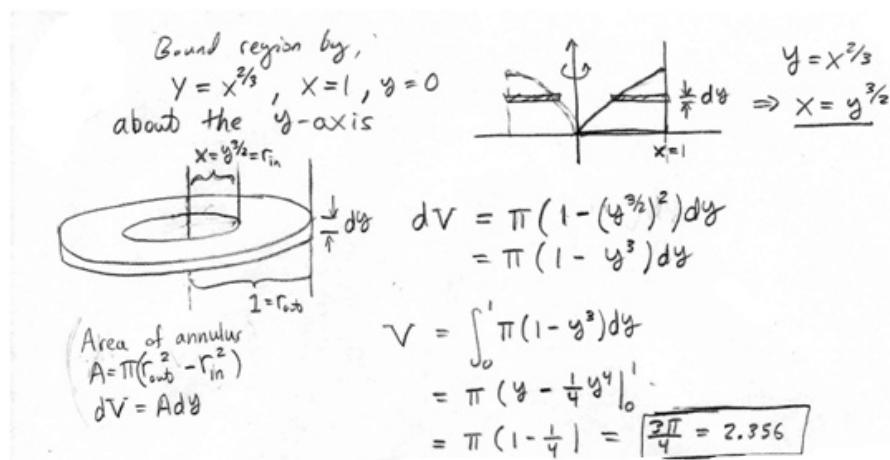 Bound region by,
y = x^{2/3} , x=1, y=0
about the y-axis
dy
x=1
y = x^{2/3}
⇒ x = y^{3/2}
x=y^{3/2}=r_{in}
dy
1=r_{out}
Area of annulus
A=π(r_{out}^2 - r_{in}^2)
dV = A dy
dV = π(1-(y^{3/2})^2)dy
= π(1- y^3)dy
V = ∫_0^1 π(1-y^3)dy
= π(y - 1/4 y^4|_0^1
= π(1-1/4) = 3π/4 = 2.356